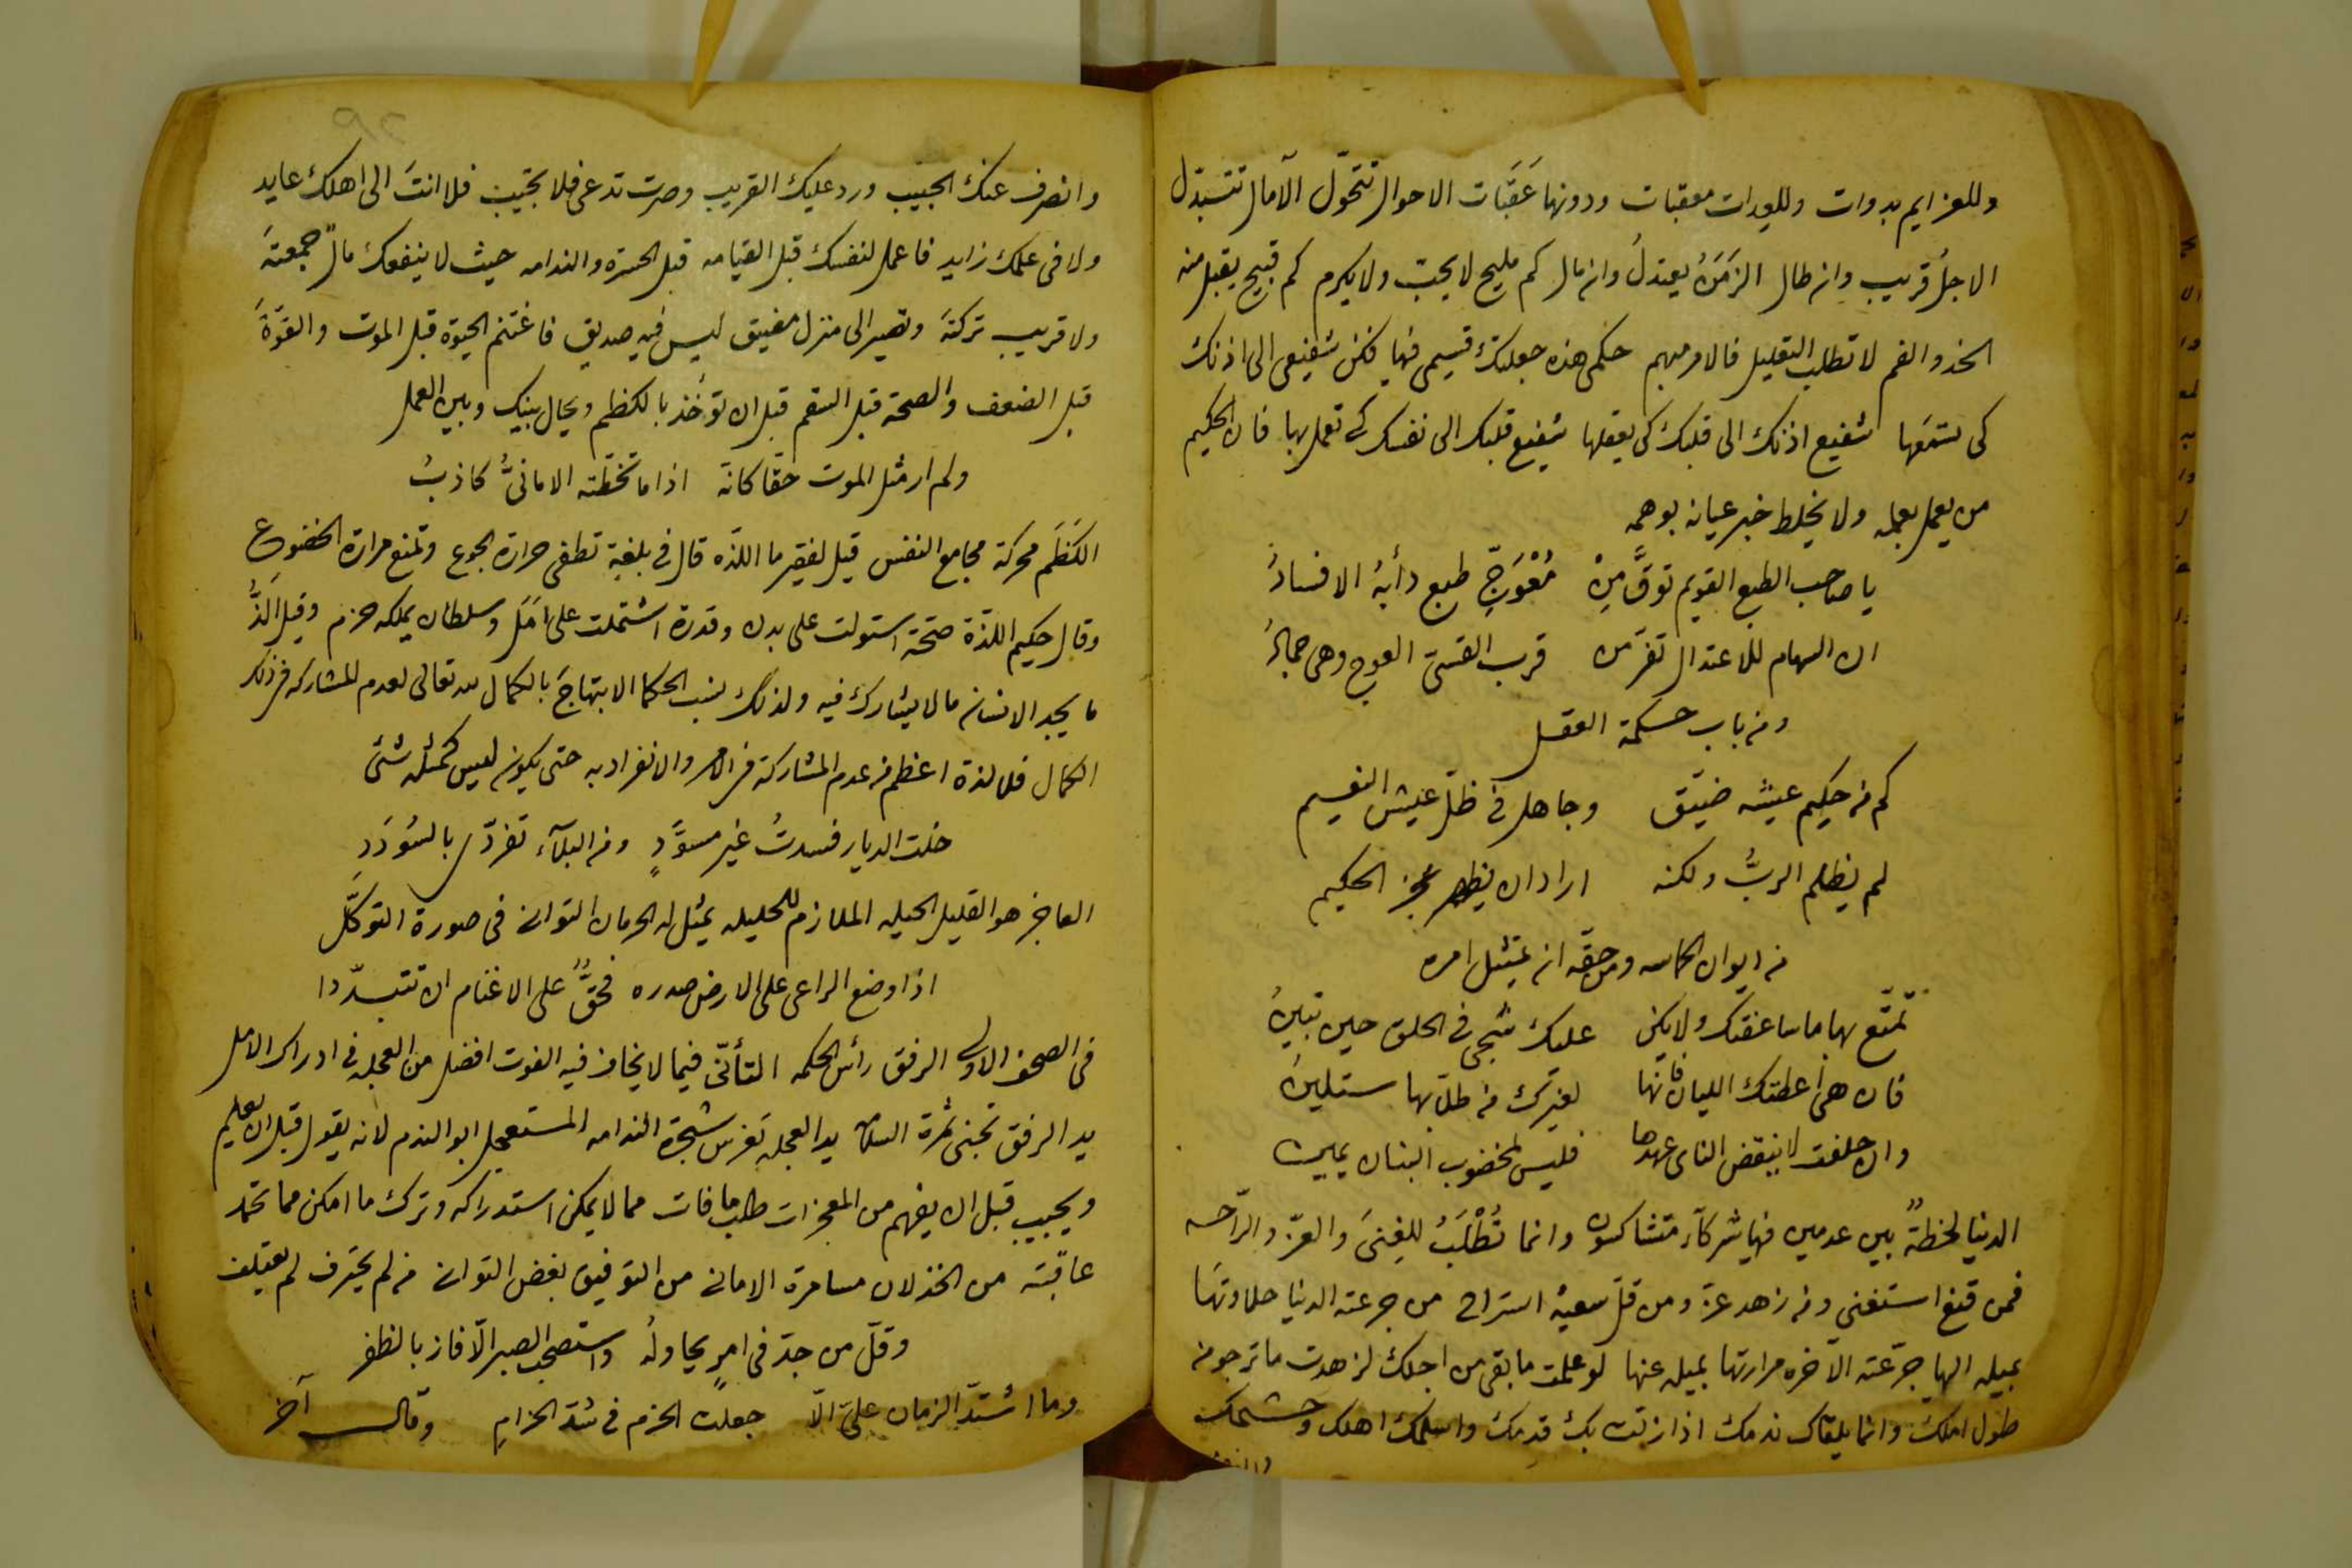 وللعزايم بدوات وللعدات معقبات ودونها عَقَبَات الاحوال تتحوّل الآمال تتبدّل
الاجلُ قريب وان طال الزمَنُ يعتدلُ وان مال كم مليح لا يحبّ ولا يكرم كم قبيح يقبل منه
الخد والفم لا تطلب التعليل فالامر مبهم حكمى هذه جعلتك قسيمى فيها فكن شفيعى الى اذنك
كى تسمعها شفيع اذنك الى قلبك كى يعقلها شفيع قلبك الى نفسك كى تعمل بها فان الحكيم
من يعمل بعلمه ولا يخلط خبر عيانه بوهمه
يا صاحب الطبع القويم توقَّ مِنْ مُعْوَجِّ طبع دأبهُ الافسادُ
ان السهام للاعتدال تفرّ من قرب القسىّ العوج وهى جمادُ
ومن باب حكمة العقل
كم من حكيم عيشه ضيّق وجاهل فى ظلّ عيش النعيم
لم يظلم الربُّ ولكنه اراد ان يظهر عجز الحكيم
من ايوان الحماسه ومن حقّه ان يتمثل امره
تمتّع بها ما ساعفتك ولا يكن عليك شجى فى الحلق حين تبينُ
فان هى اعطتك الليان فانها لغيرك من طلابها ستلينُ
وان حلفت لا ينقض الناى عهدها فليس لمخضوب البنان يمين
الدنيا لحظةٌ بين عدمين فيها شركآء متشاكسون وانما تُطْلَبُ للغِنىَ والعزّ والرّاحه
فمن قنع استغنى ومن زهد عزّ ومن قلّ سعيهُ استراح من جرعته الدنيا حلاوتها
بميله اليها جرّعته الآخره مرارتها بميله عنها لو علمت ما بقى من اجلك لزهدت ما ترجو من
طول املك وانما يلقاك ندمك اذا زلّت بك قدمك واسلمك اهلك وحشمك
وانصرف عنك الحبيب وردعليك القريب وصرت تدعى فلا تجيب فلا انتَ الى اهلك عايد
ولا فى عملك زايد فاعمل لنفسك قبل القيامه قبل الحسره والندامه حيث لا ينفعك مالٌ جمعتهَ
ولا قريب تركتهَ وتصير الى منزل مضيق ليس فيه صديق فاغتنم الحيوة قبل الموت والقوّةَ
قبل الضعف والصحة قبل السقم قبل ان تؤخذ بالكظم ويحال بينك وبين العمل
ولم ار مثل الموت حقّا كانه اذا ما تخطّته الامانىُّ كاذبُ
الكَظَم محركة مجامع النفس قيل لفقير ما اللذّه قال فى بلغة تطفى حرارة الجوع وتمنع مرارة الخضوع
وقال حكيم اللذة صحّة استولت على بدن وقدرة اشتملت على امَل وسلطان يملكه حزم وقيل الَذُّ
ما يجد الانسان مالا يشارك فيه ولذلك نسب الحكما الابتهاجَ بالكمال لله تعالى لعدم المشاركه فى ذلك
الكمال فلا لذة اعظم من عدم المشاركة فى الامر والانفراد به حتى يكون ليس كمثله شئ
خلت الديار فسدتُ غير مسوَّدٍ ومن البلآء تفرّدى بالسُودَدِ
العاجز هو القليل الحيله الملازم للحليله يمثل له الحرمان التوانى فى صورة التوكّل
اذا وضع الراعى على الارض صدره فحقٌّ على الاغنام ان تتبدّدا
فى الصحف الاولى الرفق رأس الحكمه التأنّى فيما لا يخاف فيه الفوت افضل من العجله فى ادراك الامل
يد الرفق تجنى ثمرة السلامه يد العجله تغرس شجرة الندامه المستعجل ابو الندم لانه يقول قبل ان يعلم
ويجيب قبل ان يفهم من المعجزات طلب ما فات مما لا يمكن استدراكه وترك ما امكن مما تحمد
عاقبته من الخذلان مسامرة الامانى من التوفيق بغض التوانى من لم يحترف لم يعتلف
وقلّ من جدّ فى امرٍ يحاولهُ واستصحب الصبر الّا فاز بالظفر
وما اشتدّ الزمان علىّ الّا جعلت الحزم فى شدّ الحزامِ وقال آخر